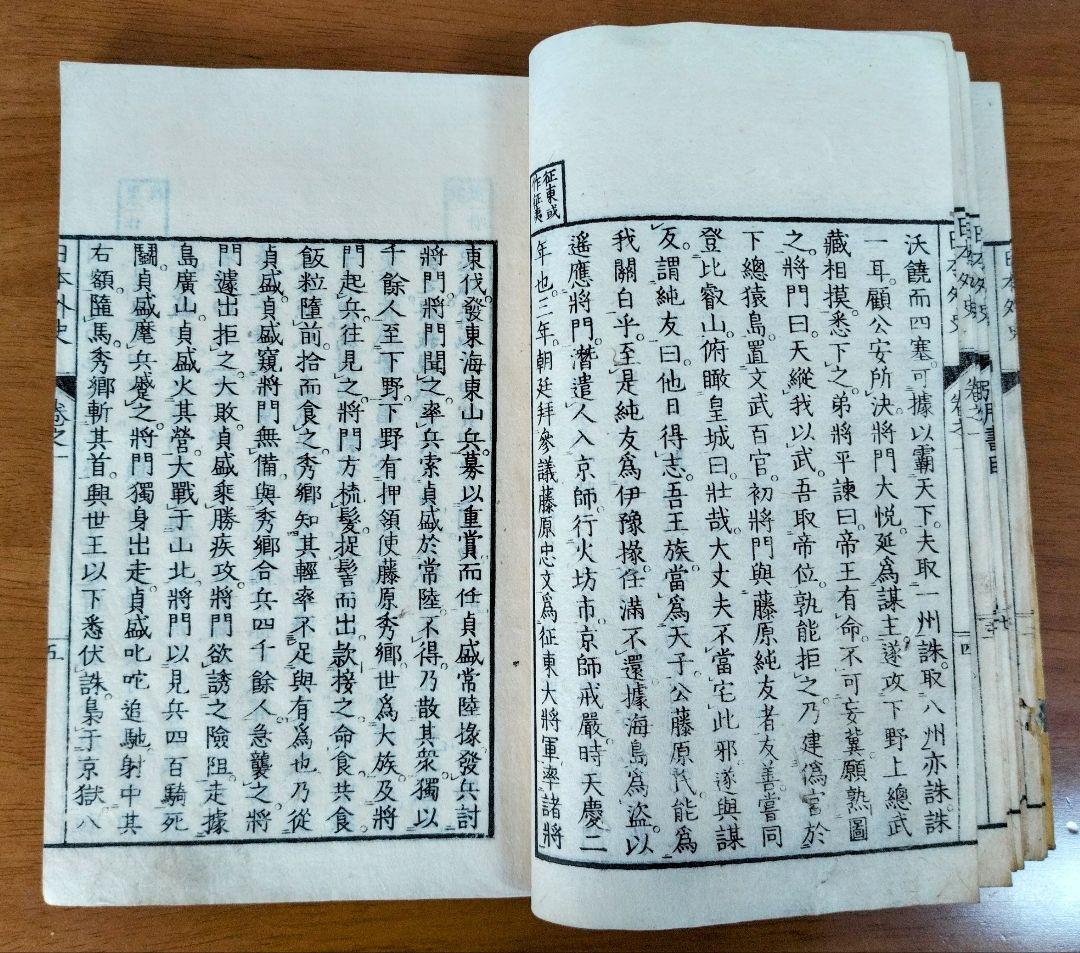 征東或
作征夷
沃饒而四塞。可據以霸天下。夫取一州誅。取八州亦誅。誅
一耳。顧公安所決。將門大悦。延爲謀主。遂攻下野上總武
藏相摸。悉下之。弟將平諫曰。帝王有命。不可妄冀。願熟圖
之。將門曰。天縱我以武。吾取帝位。孰能拒之。乃建僞宮於
下總猿島。置文武百官。初將門與藤原純友者友善。嘗同
登比叡山。俯瞰皇城曰。壯哉。大丈夫不當宅此邪。遂與謀
友。謂純友曰。他日得志。吾王族。當爲天子。公藤原氏。能爲
我關白乎。至是純友爲伊豫掾。任滿不還。據海島爲盜。以
遙應將門。潛遣人入京師。行火坊市。京師戒嚴。時天慶二
年也。三年。朝廷拜參議藤原忠文爲征東大將軍。率諸將
日本外史
卷之一
四
東伐。發東海東山兵。募以重賞。而任貞盛常陸掾。發兵討
將門。將門聞之。率兵索貞盛於常陸。不得。乃散其衆。獨以
千餘人至下野。下野有押領使藤原秀鄉。世爲大族。及將
門起兵。往見之。將門方梳髮。捉髻而出。款接之。命食共食。
飯粒墮前。拾而食之。秀鄉知其輕率不足與有爲也。乃從
貞盛。貞盛窺將門無備。與秀鄉合兵四千餘人。急襲之。將
門遽出拒之。大敗。貞盛乘勝疾攻。將門欲誘之險阻。走據
島廣山。貞盛火其營。大戰于山北。將門以見兵四百騎死
鬪。貞盛麾兵蹙之。將門獨身出走。貞盛叱咤追馳。射中其
右額。墮馬。秀鄉斬其首。興世王以下悉伏誅。梟于京獄。八
日本外史
卷之一
五